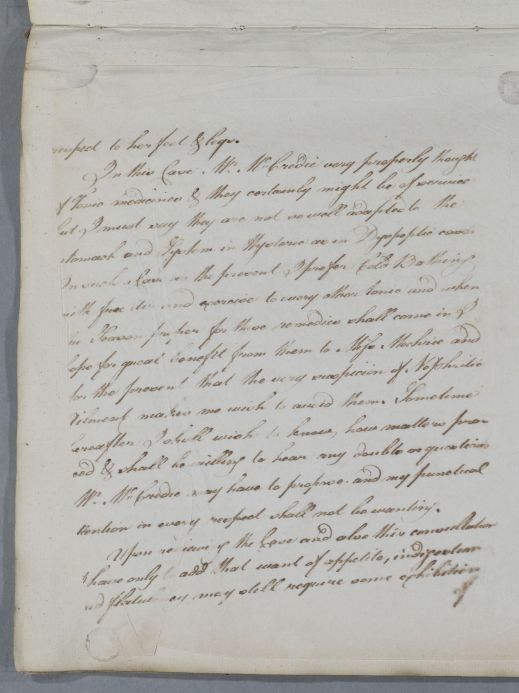 respect to her feet & legs.
In this Case Mr. McCredie very properly thought
of Tonic medicines & they certainly might be of service
but I must say they are not so well adapted to the
stomach and System in Hysteric as in Dyspeptic cases
In such a Case as the present I prefer Cold Bathing
with free Air and exercise to every other tonic and when
the Season proper for these remedies shall come in I
hope for great benefit from them to Miss
for the present that the very suspicion of Nephritic
ailment makes me wish to avoid them. Sometime
hereafter I shall wish to know, how matters pro-
ceed & shall be willing to hear any doubts or questions
Mr. McCredie may have to propose and my punctual
attention in every respect shall not be wanting.
Upon reviewing the Case and also this consultation
I have only to add that want of appetite, indigestion
and flatulency may still require some exhibition
of